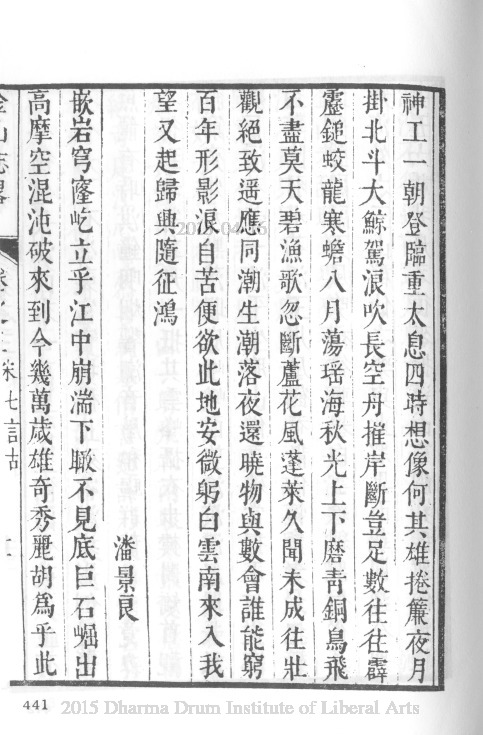 神工一朝登臨重太息四時想像何其雄捲簾夜月
掛北斗大鯨駕浪吹長空舟摧岸斷豈足數往往霹
靂鎚蛟龍寒蟾八月蕩瑶海秋光上下磨青銅鳥飛
不盡莫天碧漁歌忽斷蘆花風蓬萊久聞未成往壯
觀絕致遥應同潮生潮落夜還曉物與數會誰能窮
百年形影浪自苦便欲此地安微躬白雲南來入我
望又起歸興隨征鴻
潘景良
嵌岩穹窿屹立乎江中崩湍下瞰不見底巨石崛出
高摩空混沌破來到今幾萬歲雄奇秀麗胡爲乎此
金山志畧
七言古
441
2015 Dharma Drum Institute of Liberal Arts